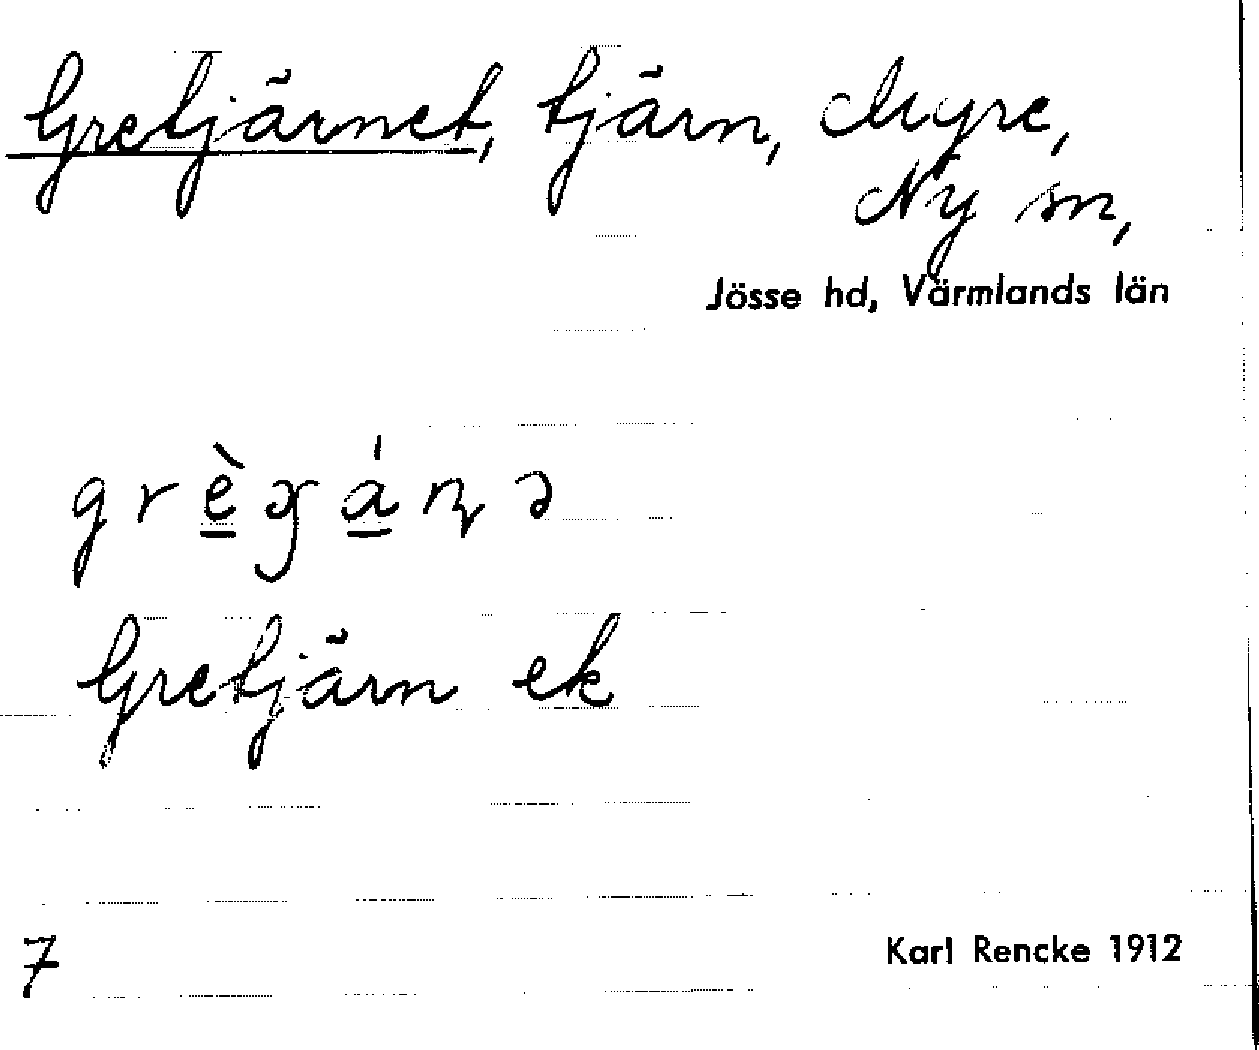 Gretjärnet, tjärn, Myre,
Ny sn,
Jösse hd, Värmlands län
Gretjärn ek
7
Karl Rencke 1912